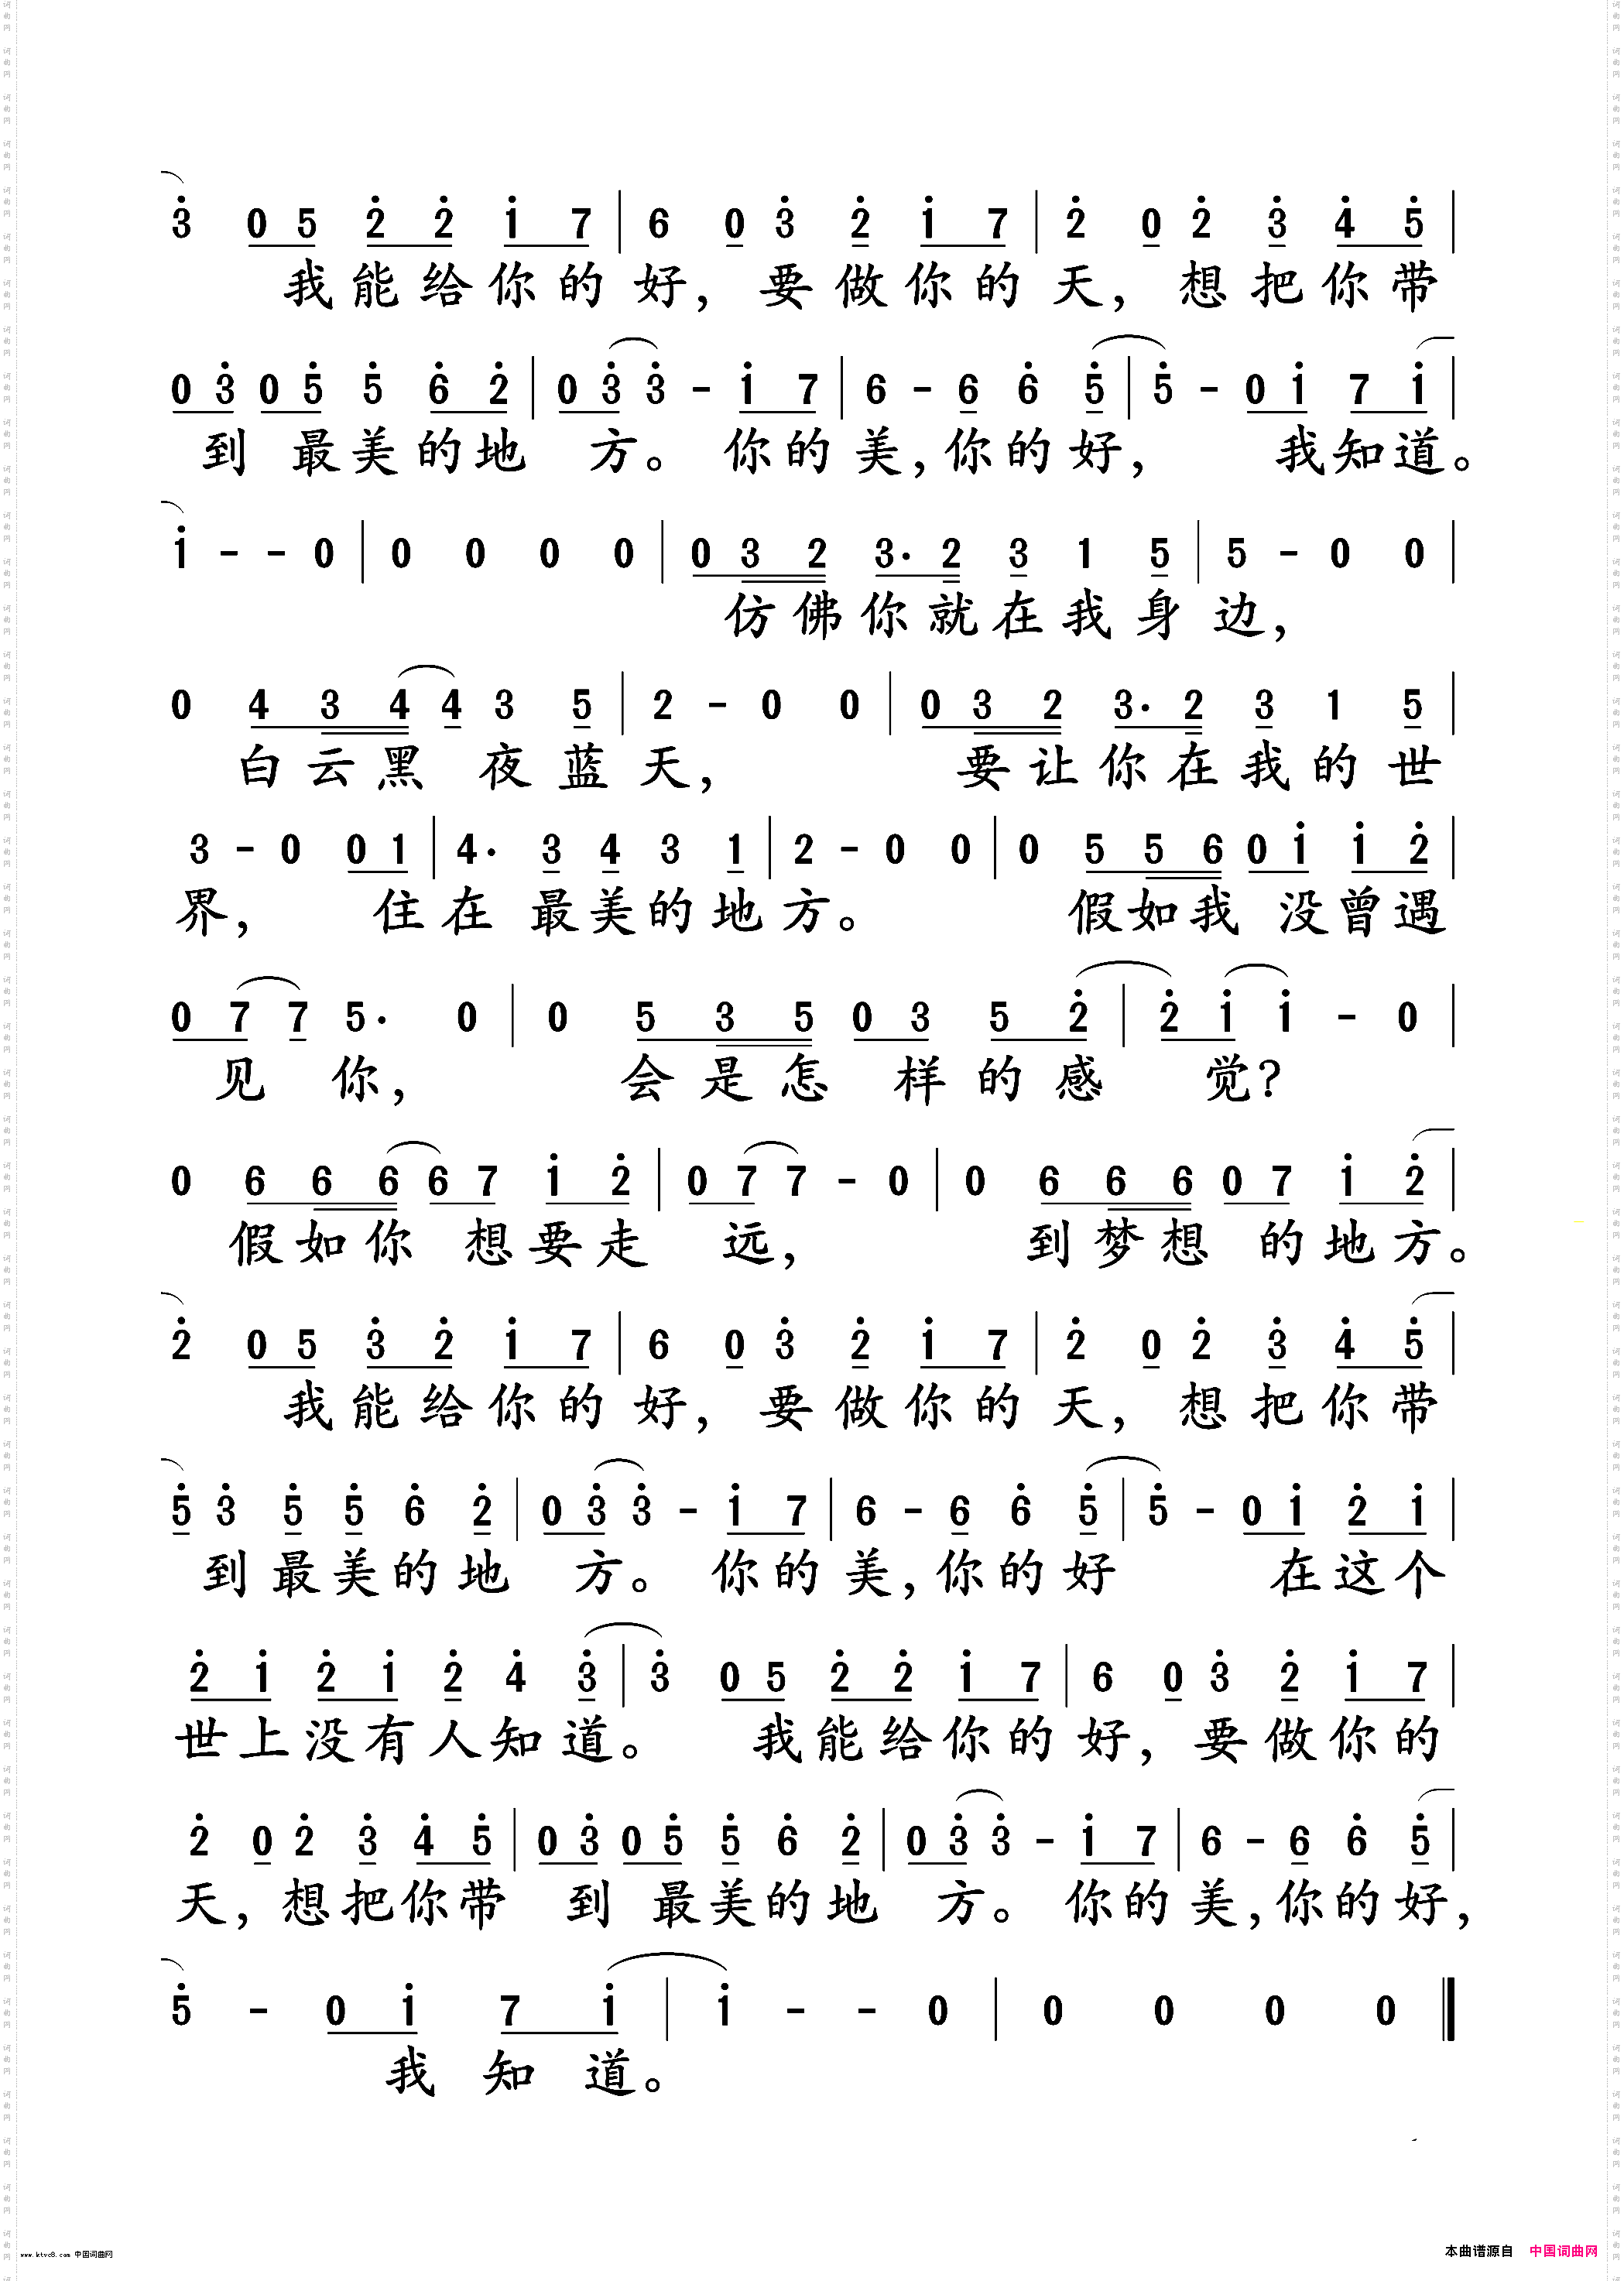 3 0 5 2 2 1 7 | 6 0 3 2 1 7 | 2 0 2 3 4 5 |
我能给你的好，要做你的天，想把你带
0 3 0 5 5 6 2 | 0 3 3 - 1 7 | 6 - 6 6 5 | 5 - 0 1 7 1 |
到最美的地方。你的美，你的好，我知道。
1 - - 0 | 0 0 0 0 | 0 3 2 3· 2 3 1 5 | 5 - 0 0 |
仿佛你就在我身边，
0 4 3 4 4 3 5 | 2 - 0 0 | 0 3 2 3· 2 3 1 5 |
白云黑夜蓝天，要让你在我的世
3 - 0 0 1 | 4· 3 4 3 1 | 2 - 0 0 | 0 5 5 6 0 1 1 2 |
界，住在最美的地方。假如我没曾遇
0 7 7 5· 0 | 0 5 3 5 0 3 5 2 | 2 1 1 - 0 |
见你，会是怎样的感觉？
0 6 6 6 6 7 1 2 | 0 7 7 - 0 | 0 6 6 6 0 7 1 2 |
假如你想要走远，到梦想的地方。
2 0 5 3 2 1 7 | 6 0 3 2 1 7 | 2 0 2 3 4 5 |
我能给你的好，要做你的天，想把你带
5 3 5 5 6 2 | 0 3 3 - 1 7 | 6 - 6 6 5 | 5 - 0 1 2 1 |
到最美的地方。你的美，你的好在这个
2 1 2 1 2 4 3 | 3 0 5 2 2 1 7 | 6 0 3 2 1 7 |
世上没有人知道。我能给你的好，要做你的
2 0 2 3 4 5 | 0 3 0 5 5 6 2 | 0 3 3 - 1 7 | 6 - 6 6 5 |
天，想把你带到最美的地方。你的美，你的好，
5 - 0 1 7 1 | 1 - - 0 | 0 0 0 0
我知道。
www.ktvc8.com 中国词曲网
本曲谱源自 中国词曲网